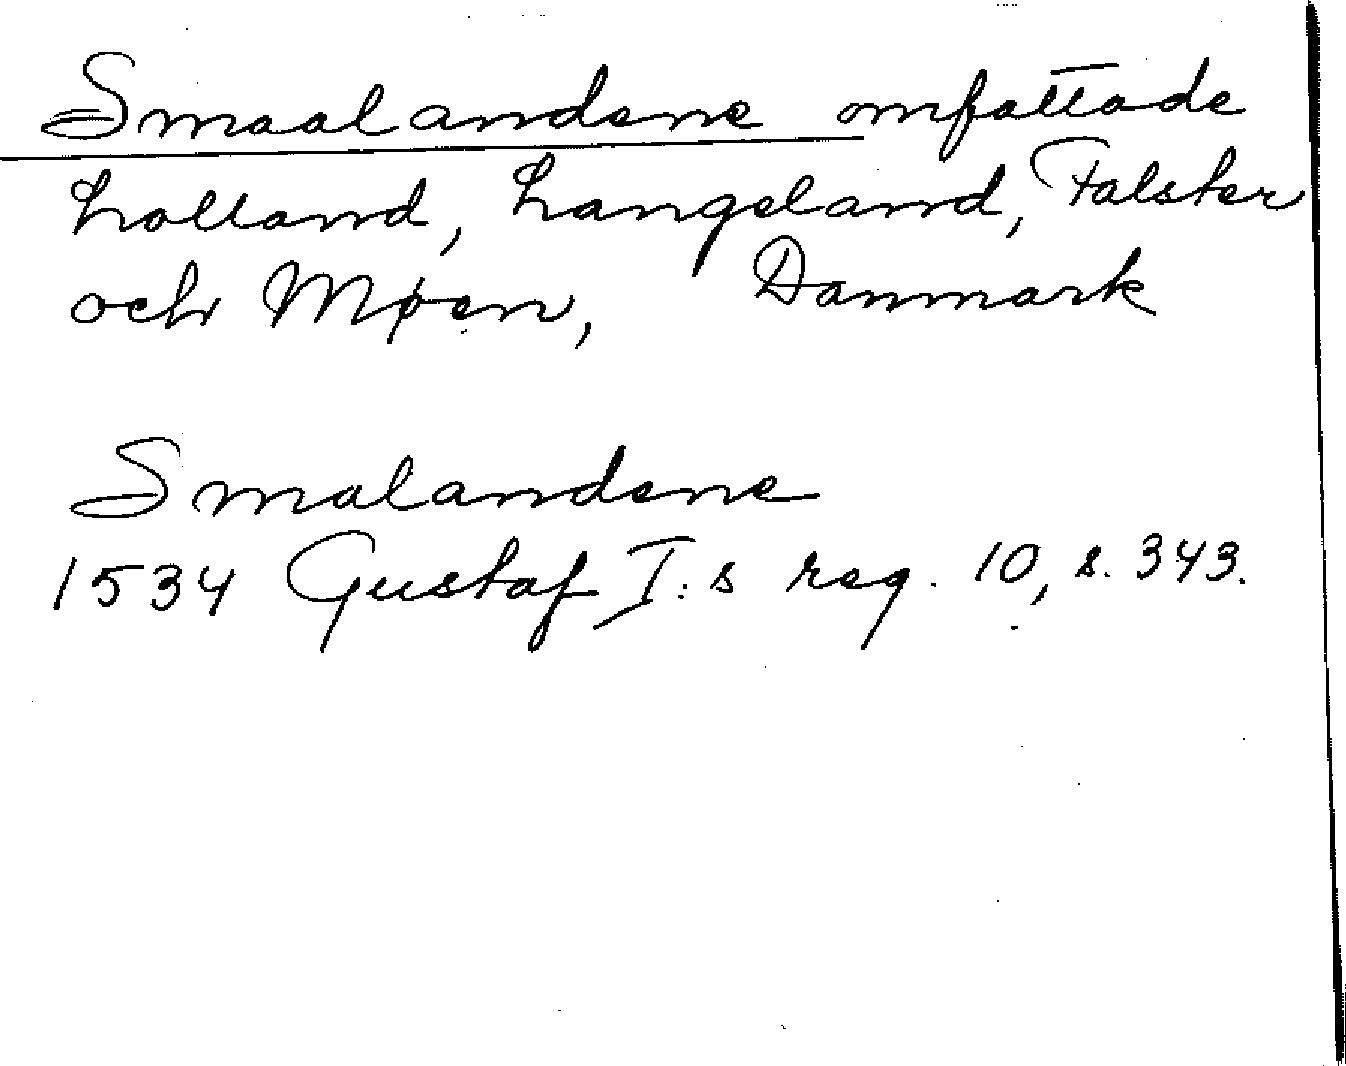 Smaalandene omfattade
Lolland, Langeland, Falster
och Møen, Danmark
Smalandene
1534 Gustaf I:s reg. 10, s. 343.